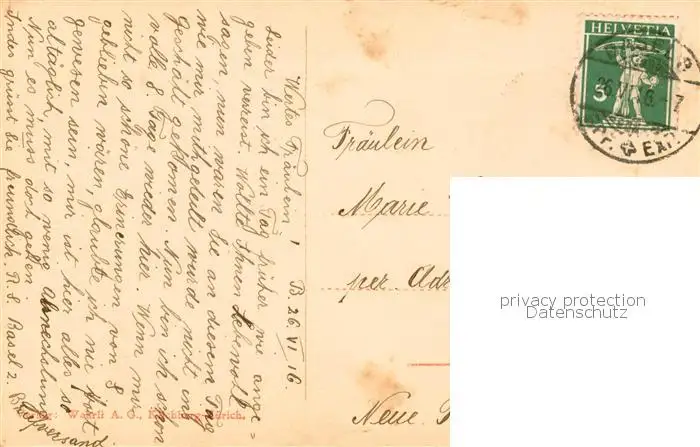 B. 26. VI. 16.
Wertes Fräulein!
Leider bin ich ein Tag früher wie ange=
geben verreist. Wollte Ihnen Lebewohl
sagen, nun waren Sie an diesem Tag
wie mir mitgeteilt wurde nicht ins
Geschäft gekommen. Nun bin ich schon
volle 8 Tage wieder hier. Wenn mir
nicht so schöne Erinerungen von
geblieben wären, glaubte ich nie fort
gewesen sein, mir ist hier alles so
alltäglich, mit so wenig Abwechslung
Nun es muss doch gehen
Indes grüsst Sie freundlich R. S. Basel 2.
HELVETIA
5
Fräulein
Marie
per Adr
Neue
Wehrli A. G., Kilchberg-Zürich.
privacy protection
Datenschutz